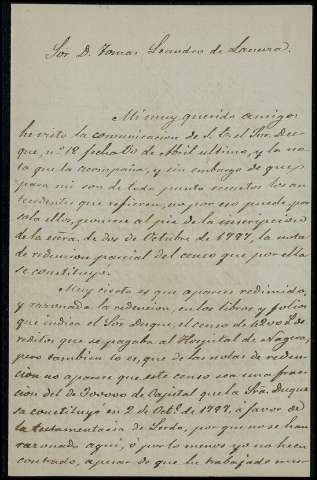 Sor. D. Tomas Leandro de
Mi muy querido amigo:
he visto la comunicacion de S. E. el Sor. Du-
que, nº 12 fecha de Abril ultimo, y la no-
ta que la acompaña, y sin embargo de que
para mi son de todo punto los an-
tecedentes que refieren, no por eso puede, por
solo ellos, ponerse al pie de la inscripcion
de la escra. de dos de Octubre de 1797, la nota
de redencion parcial del censo que por ella
se constituyó.
Muy cierto es que aparece redimido,
y razonada la redencion, en los libros y folios
que indica el Sor. Duque, el censo de
reditos que se pagaba al Hospital de Nagera,
pero tambien lo es, que de las notas de reden-
cion no aparece que este censo sea una frac-
cion del de de Capital que la Sra. Duque-
sa constituyó en 2 de Octe. de 1797, á favor de
la testamentaria de Lerdo, por que no se han
razonado aqui, ó por lo menos yo no las en-
contrado, apesar de que he trabajado mu-